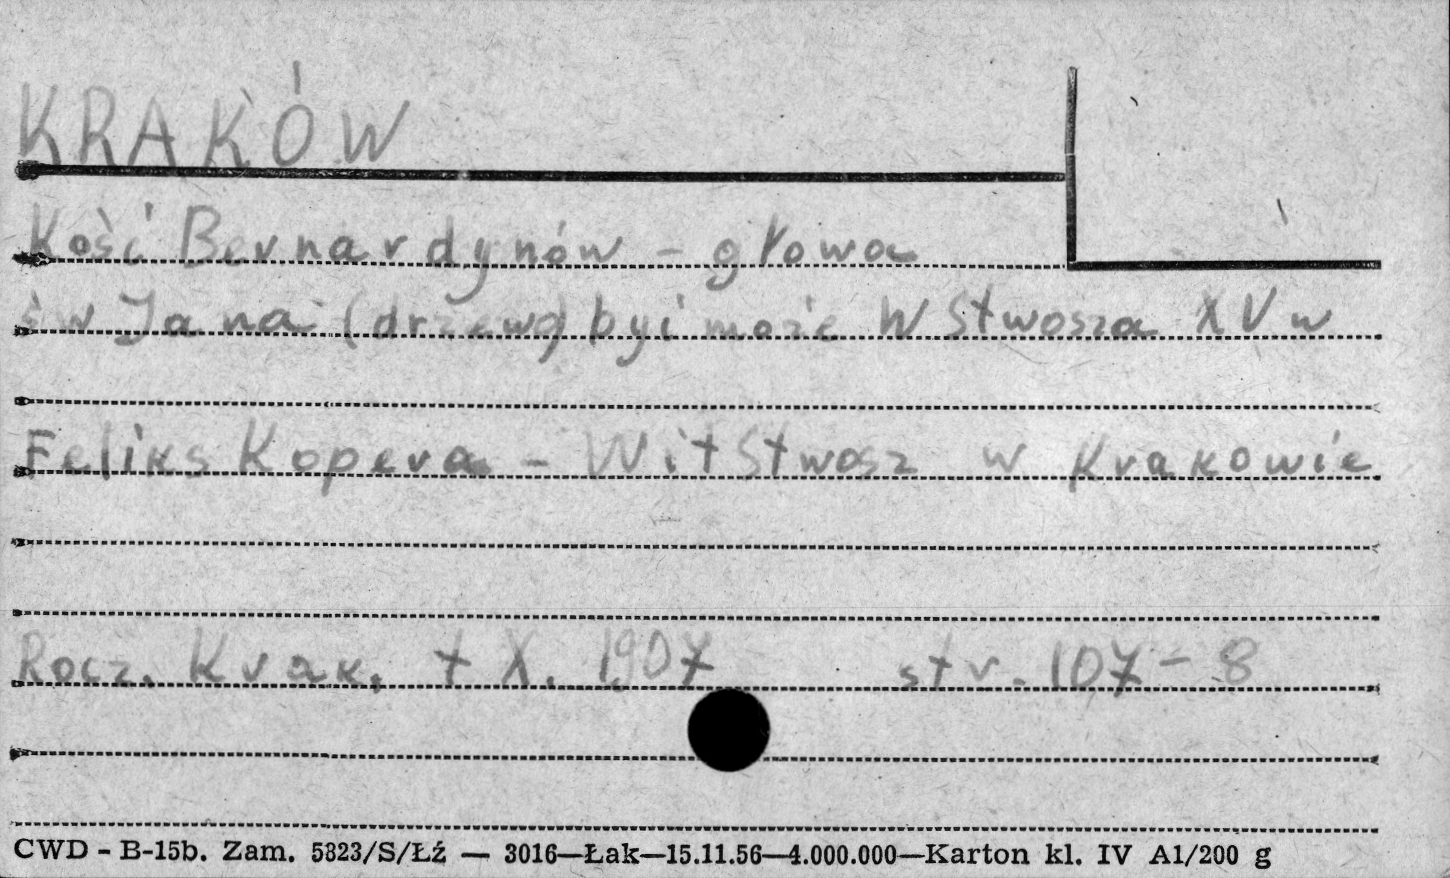 KRAKÓW
Kość Bernardynów - głowa
św Jana (drzewo) być może W Stwosza XV w
Feliks Kopera - Wit Stwosz w Krakowie
Rocz. Krak. t X. 1907 str. 107-8
CWD - B-15b. Zam. 5823/S/Łź — 3016—Łak—15.11.56—4.000.000—Karton kl. IV A1/200 g